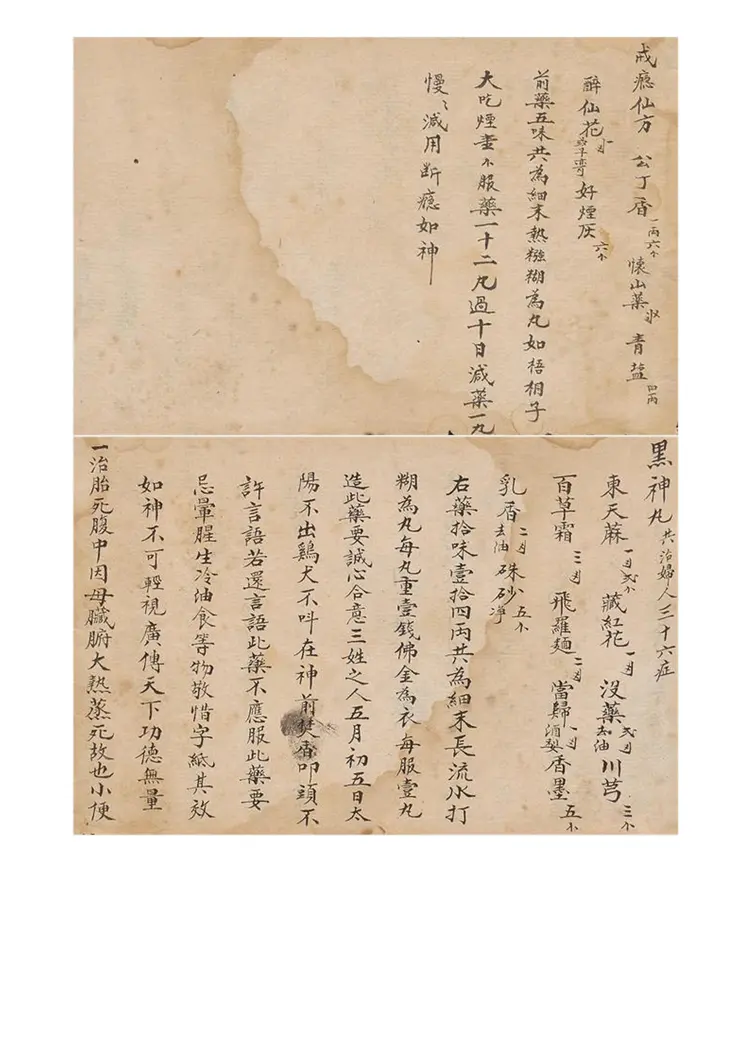 戒瘾仙方 公丁香一两六 懷山藥 青盐四两
醉仙花 好煙灰六
前藥五味共為細末熟糨糊為丸如梧桐子
大吃煙壹 服藥一十二丸過十日減藥一丸
慢慢減用断瘾如神
黑神丸共治婦人三十六症
東天蔴 藏紅花 没藥去油 川芎三
百草霜三 飛羅麵二 當歸酒製 香墨五
乳香去油 硃砂五
右藥拾味壹拾四两共為細末長流水打
糊為丸每丸重壹錢佛金為衣每服壹丸
造此藥要誠心合意三姓之人五月初五日太
陽不出鷄犬不叫在神前焚香叩頭不
許言語若還言語此藥不應服此藥要
忌葷腥生冷油食等物敬惜字紙其效
如神不可輕視廣傳天下功德無量
一治胎死腹中因母臟腑大熱蒸死故也小便